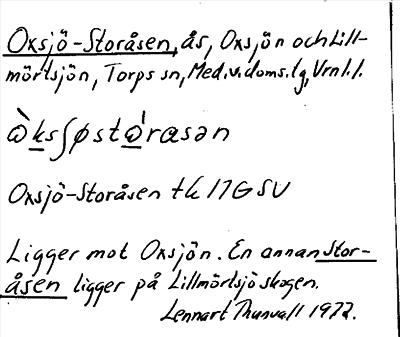 Oxsjö-Storåsen, ås, Oxsjön och Lill-
mörtsjön, Torps sn, Med.v.doms.lg, Vrnl.l.
ὼksʃøstὼrasən
Oxsjö-Storåsen tk 17G SV
Ligger mot Oxsjön. En annan Stor-
åsen ligger på Lillmörtsjöskogen.
Lennart Thunvall 1972.